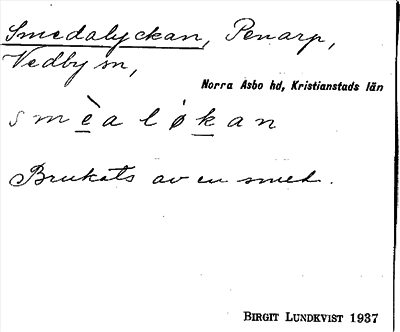 Smedalyckan, Penarp,
Vedby sn,
Norra Åsbo hd, Kristianstads län
smèaløkan
Brukats av en smed.
BIRGIT LUNDKVIST 1937